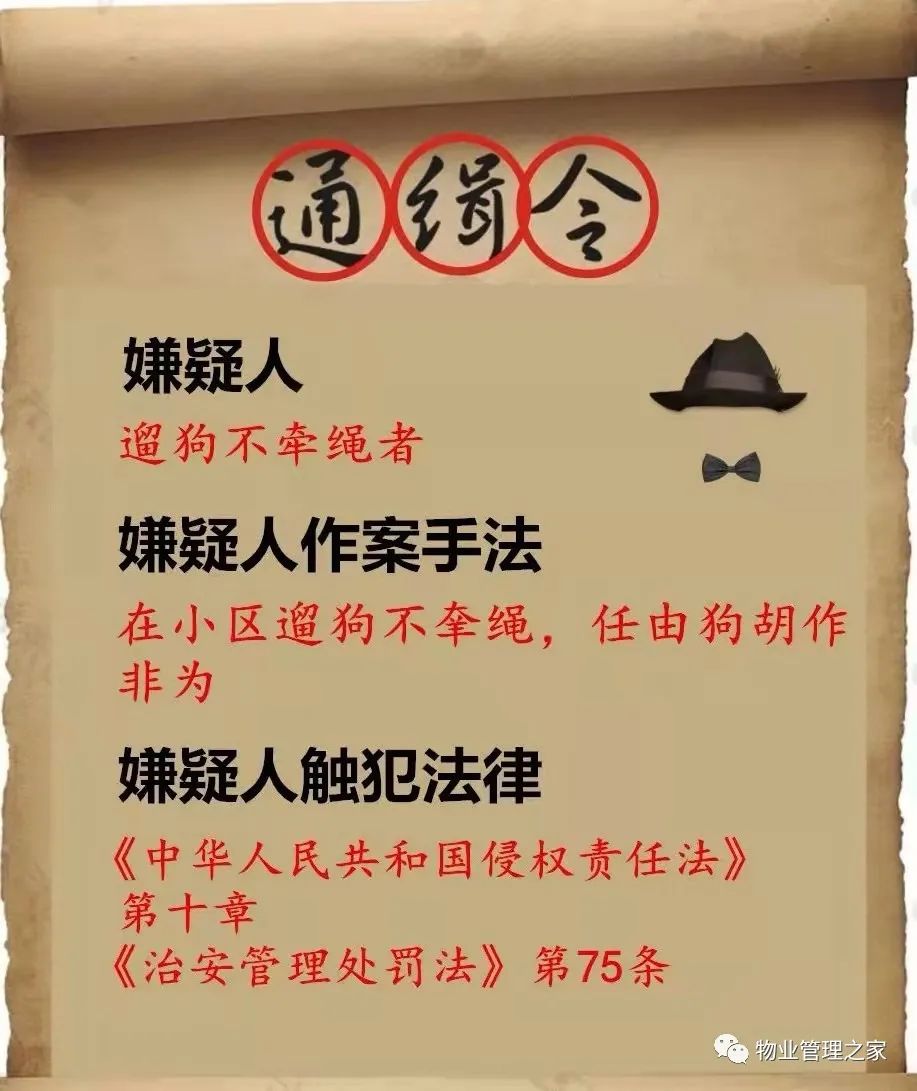 通缉令
嫌疑人
遛狗不牵绳者
嫌疑人作案手法
在小区遛狗不牵绳，任由狗胡作
非为
嫌疑人触犯法律
《中华人民共和国侵权责任法》
第十章
《治安管理处罚法》第75条
物业管理之家